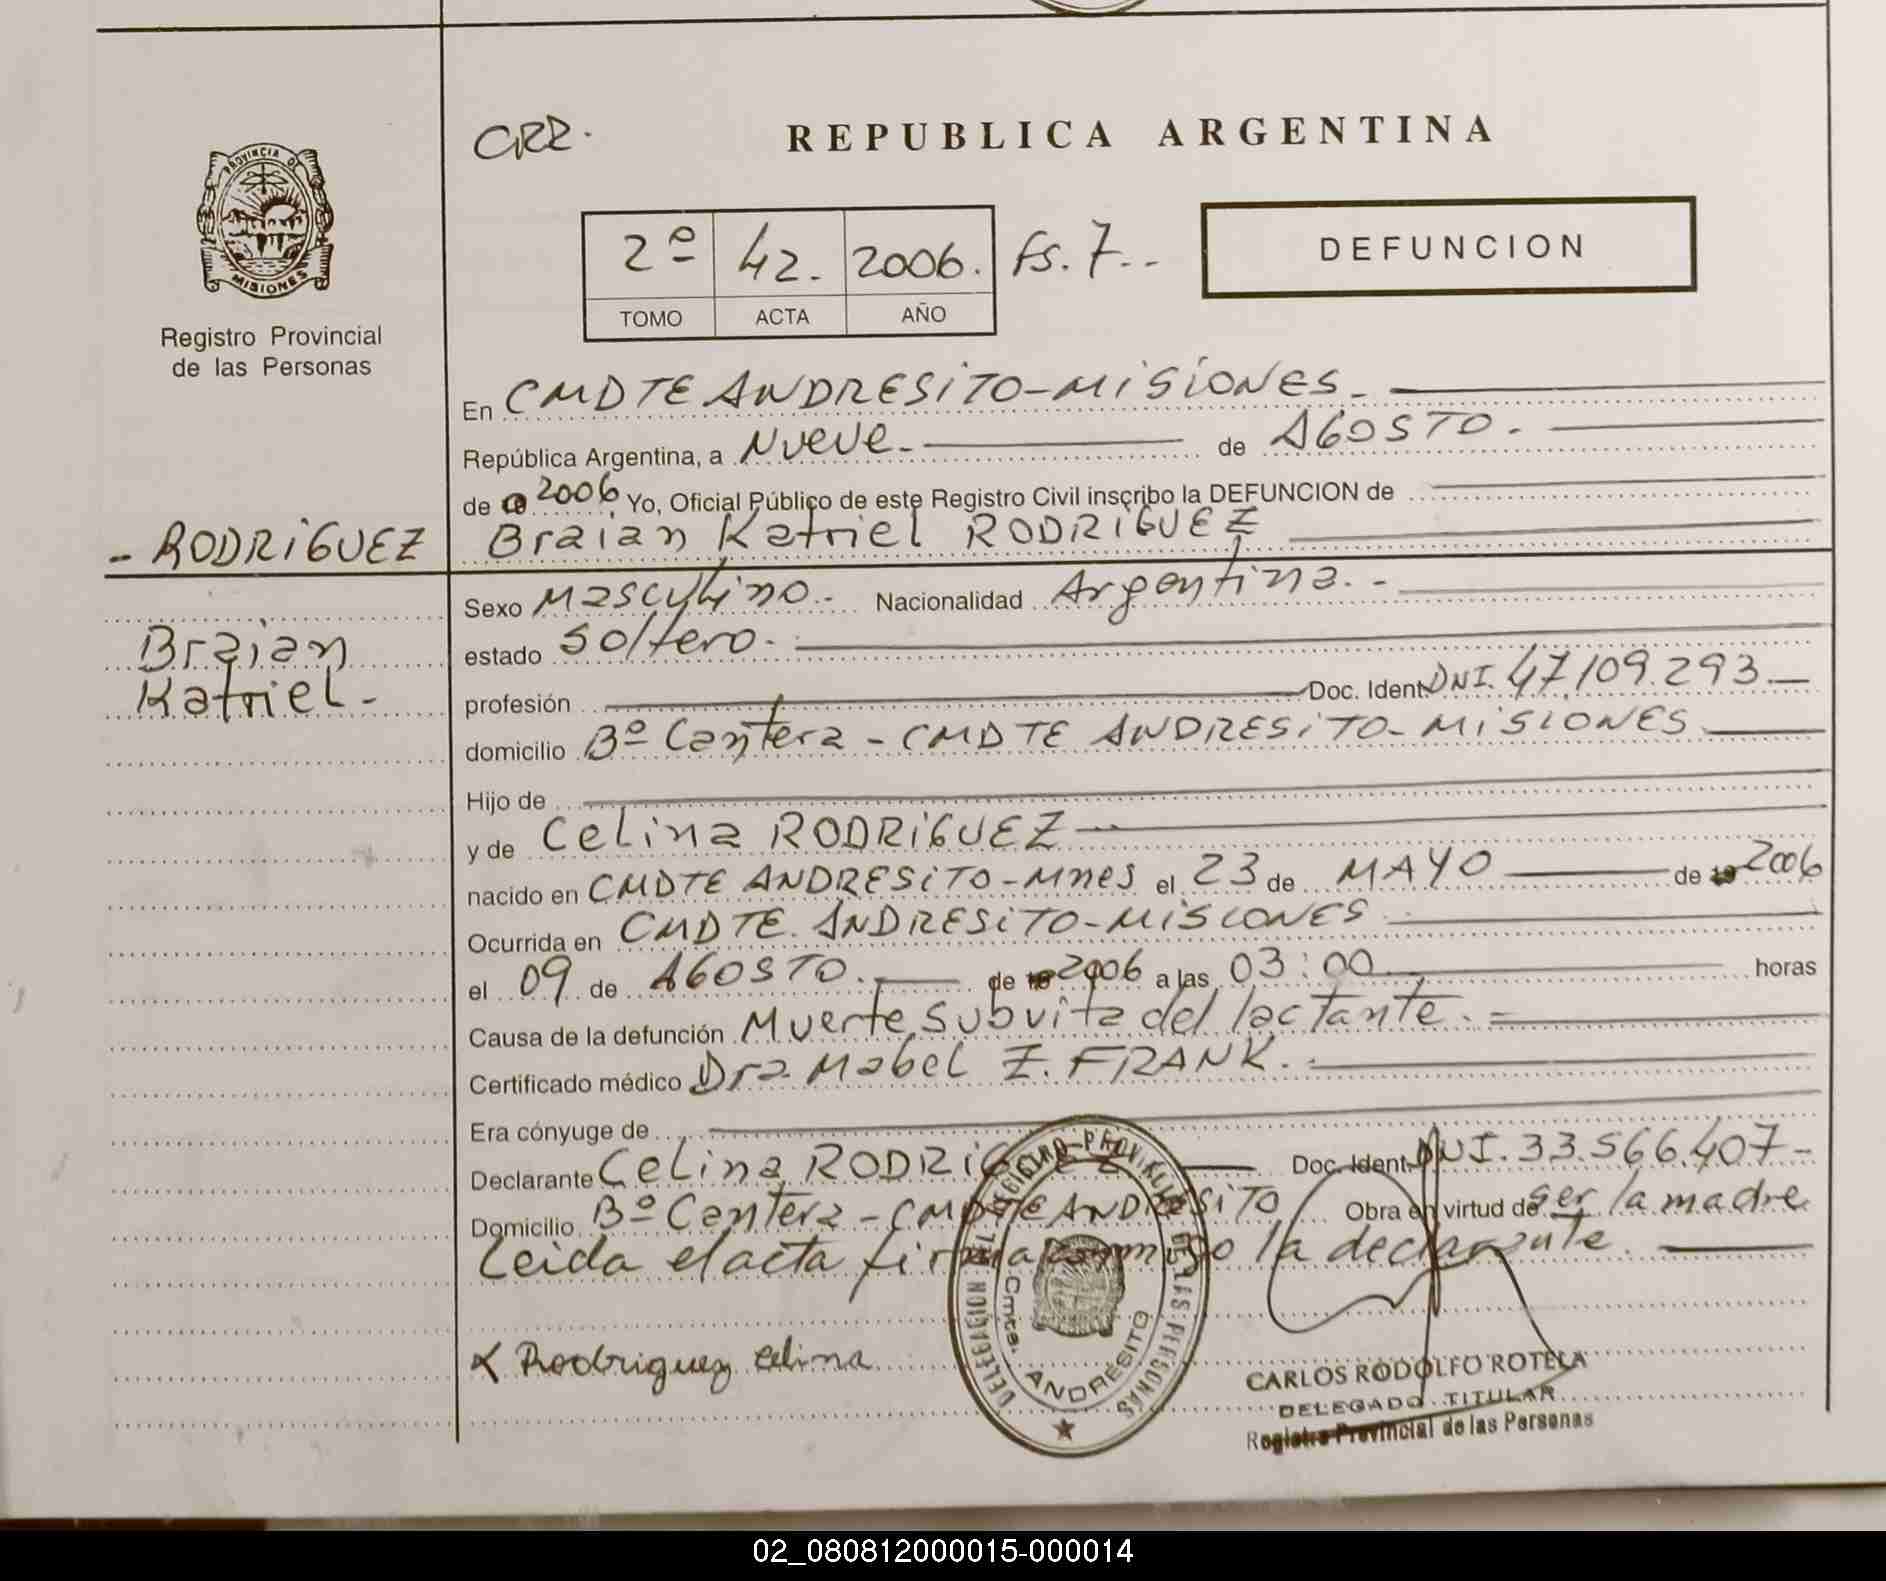 CRR.
REPUBLICA ARGENTINA
PROVINCIA DE
MISIONES
Registro Provincial
de las Personas
2º 42. 2006. fs. 7..
TOMO ACTA AÑO
DEFUNCION
En CMDTE ANDRESITO-MISIONES.
República Argentina, a Nueve. de AGOSTO.
de 2006 Yo, Oficial Público de este Registro Civil inscribo la DEFUNCION de
- RODRIGUEZ
Braian Katriel RODRIGUEZ
Braian
Katriel-
Sexo Masculino.- Nacionalidad Argentina.-
estado Soltero.
profesión Doc. Ident DNI. 47.109.293
domicilio Bº Cantera - CMDTE ANDRESITO-MISIONES
Hijo de
y de Celina RODRIGUEZ
nacido en CMDTE ANDRESITO-Mnes el 23 de MAYO de 19 2006
Ocurrida en CMDTE. ANDRESITO-MISIONES
el 09 de AGOSTO. de 19 2006 a las 03:00 horas
Causa de la defunción Muerte subvita del lactante.
Certificado médico Dra Mabel Z. FRANK.
Era cónyuge de
Declarante Celina RODRIGUEZ Doc. Ident DNI. 33.566.407-
Domicilio Bº Cantera - CMDTE ANDRESITO Obra en virtud de ser la madre
Leida el acta firma conmigo la declarante.
DELEGACION DEL REGISTRO PROVINCIAL DE LAS PERSONAS
Cmte. ANDRESITO
x Rodriguez Celina
CARLOS RODOLFO ROTELA
DELEGADO TITULAR
Registro Provincial de las Personas
02_080812000015-000014